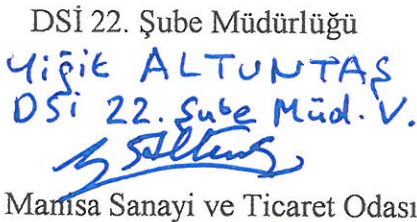 DSİ 22. Şube Müdürlüğü
Yiğit ALTUNTAŞ
DSİ 22. Şube Müd. V.
Manisa Sanayi ve Ticaret Odası